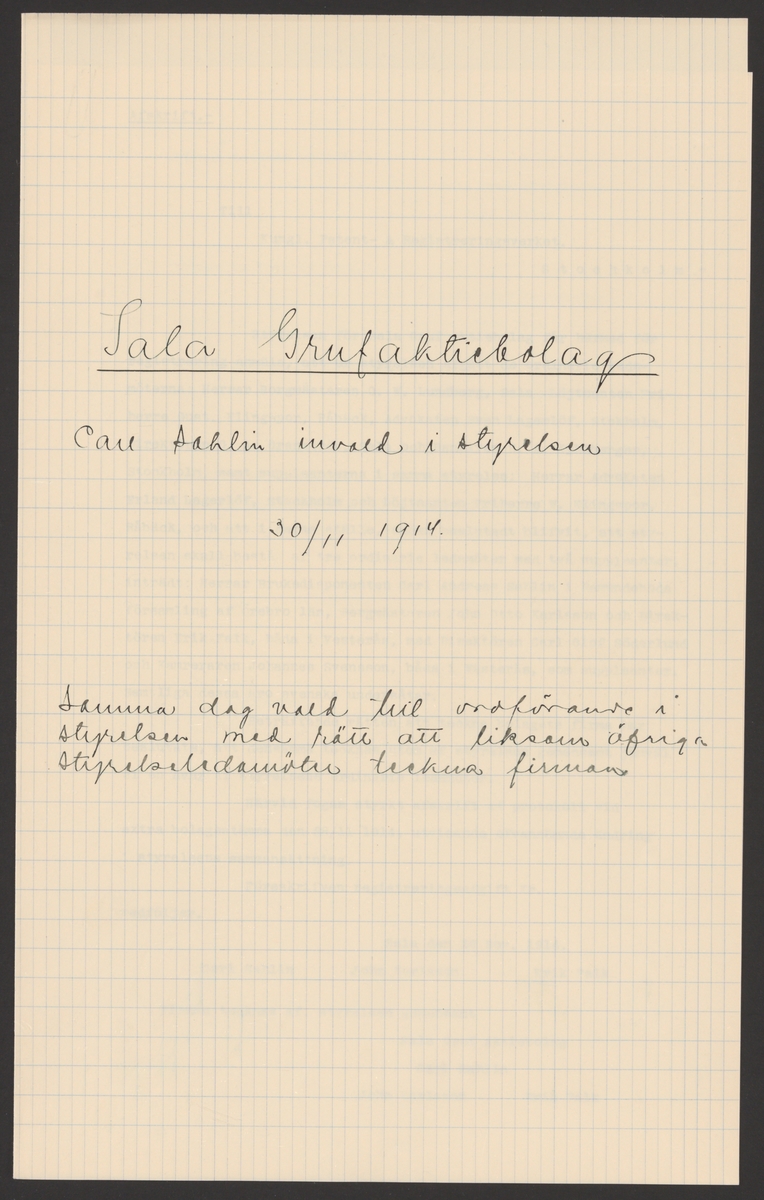 Sala Grufaktiebolag
Carl Sahlin invald i styrelsen
30/11 1914.
Samma dag vald till ordförande i
styrelsen med rätt att liksom öfriga
styrelseledamöter teckna firman